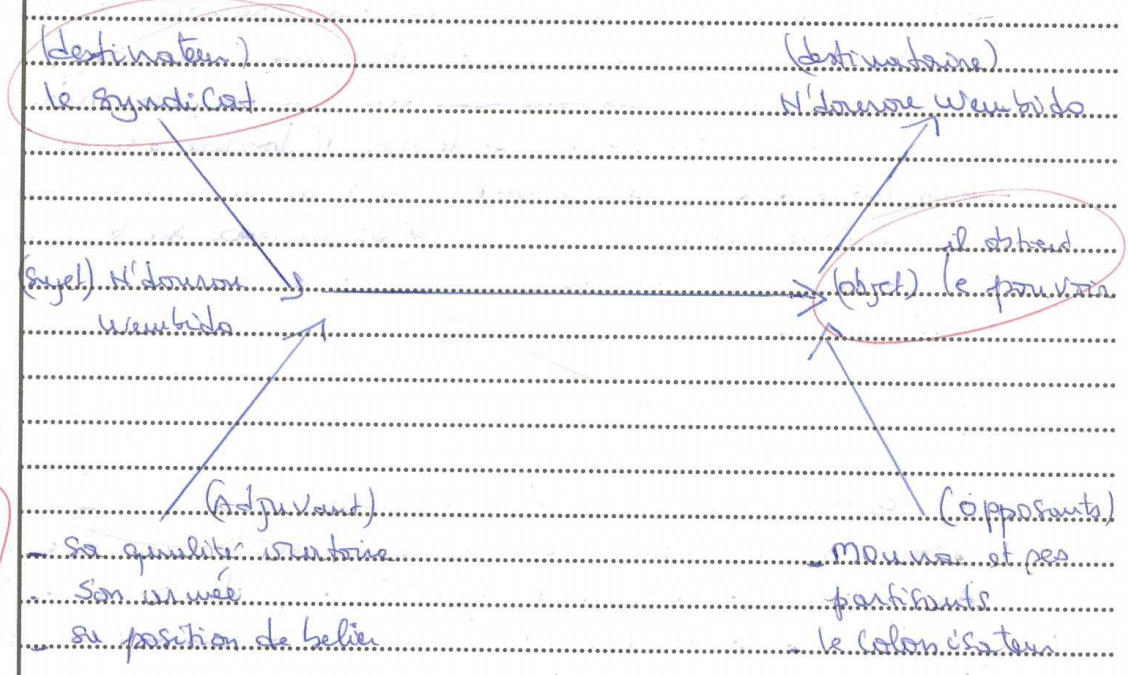 (destinateur)
le syndicat
(destinataire)
N'dourou Wembido
(Sujet) N'dourou
Wembido
il obtient
(objet) le pouvoir
(Adjuvant)
- Sa qualité oratoire
- Son armée
- Sa position de belier
(opposants)
- Mouna et ses
partisants
- le colonisateur